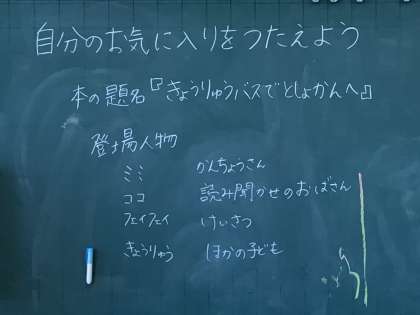 自分のお気に入りをつたえよう
本の題名『きょうりゅうバスでとしょかんへ』
登場人物
ミミ かんちょうさん
ココ 読み聞かせのおばさん
フェイフェイ けいさつ
きょうりゅう ほかの子ども